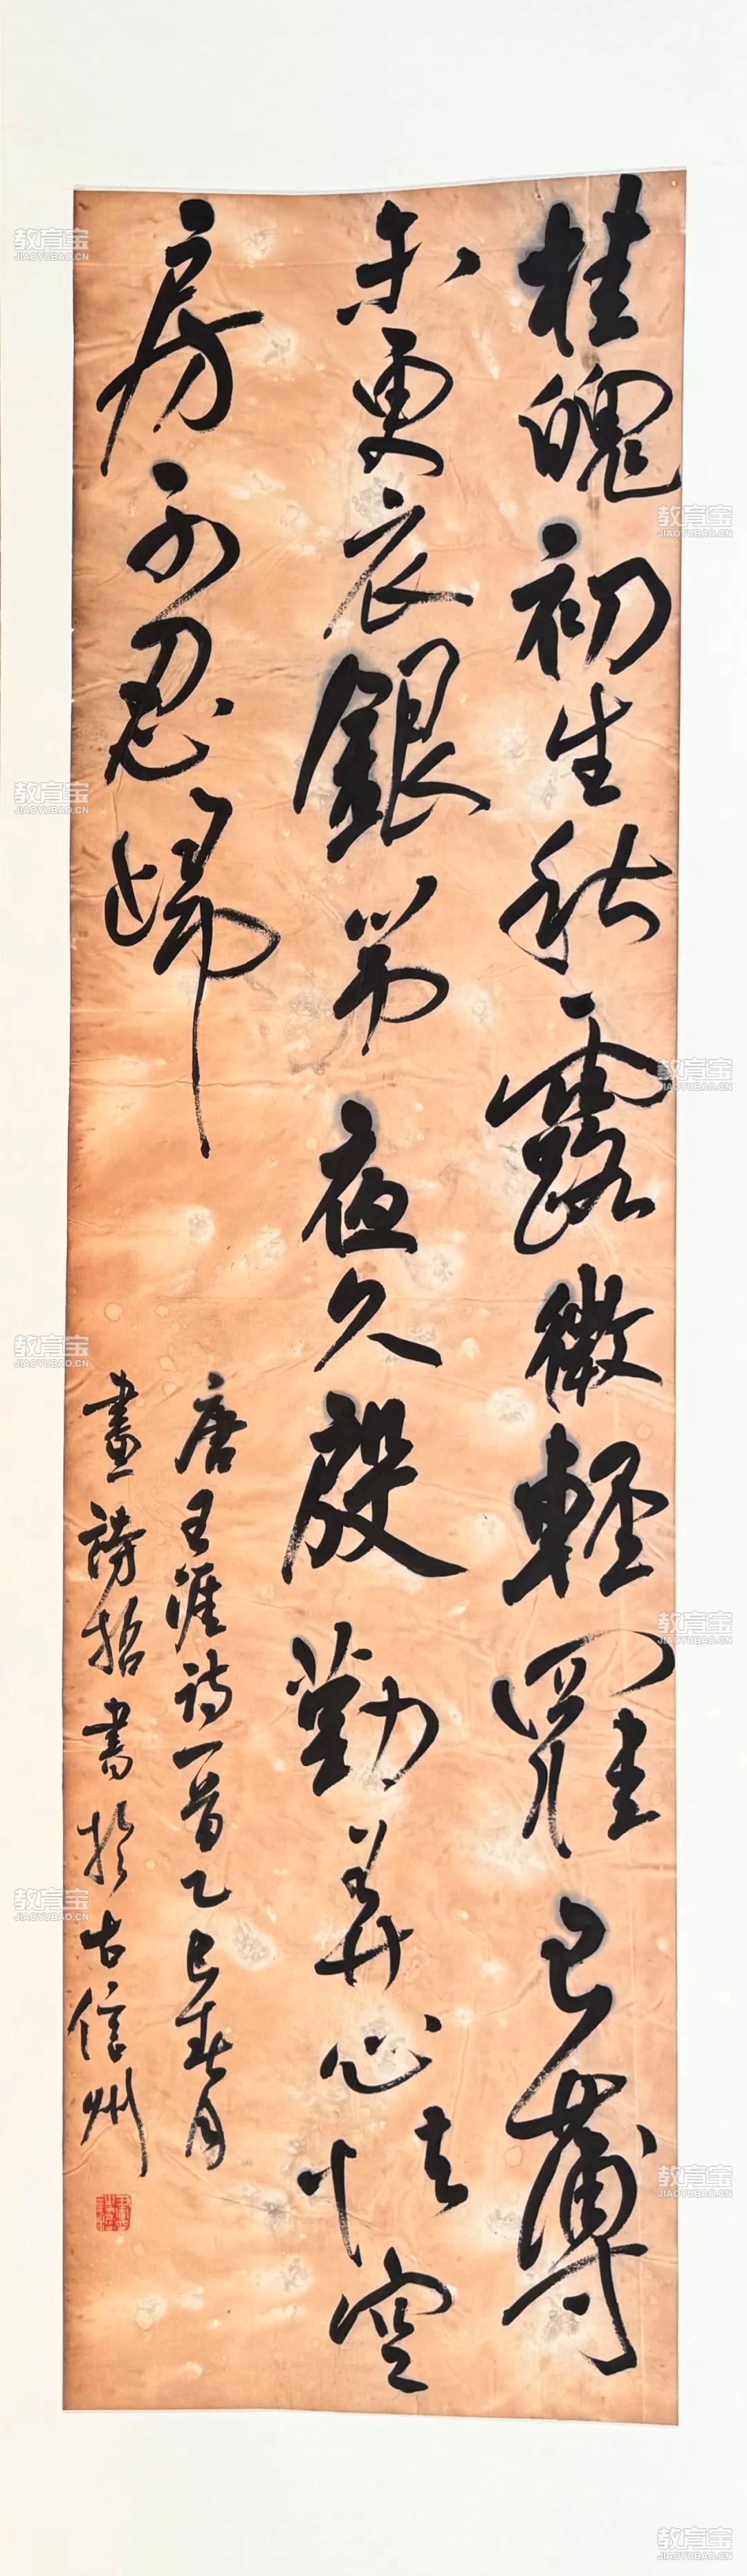 桂魄初生秋露微輕羅已薄
未更衣銀箏夜久殷勤弄心怯空
房不忍歸
唐王涯詩一首乙巳春月
畫詩哲書於古信州
教育宝
JIAOYUBAO.CN